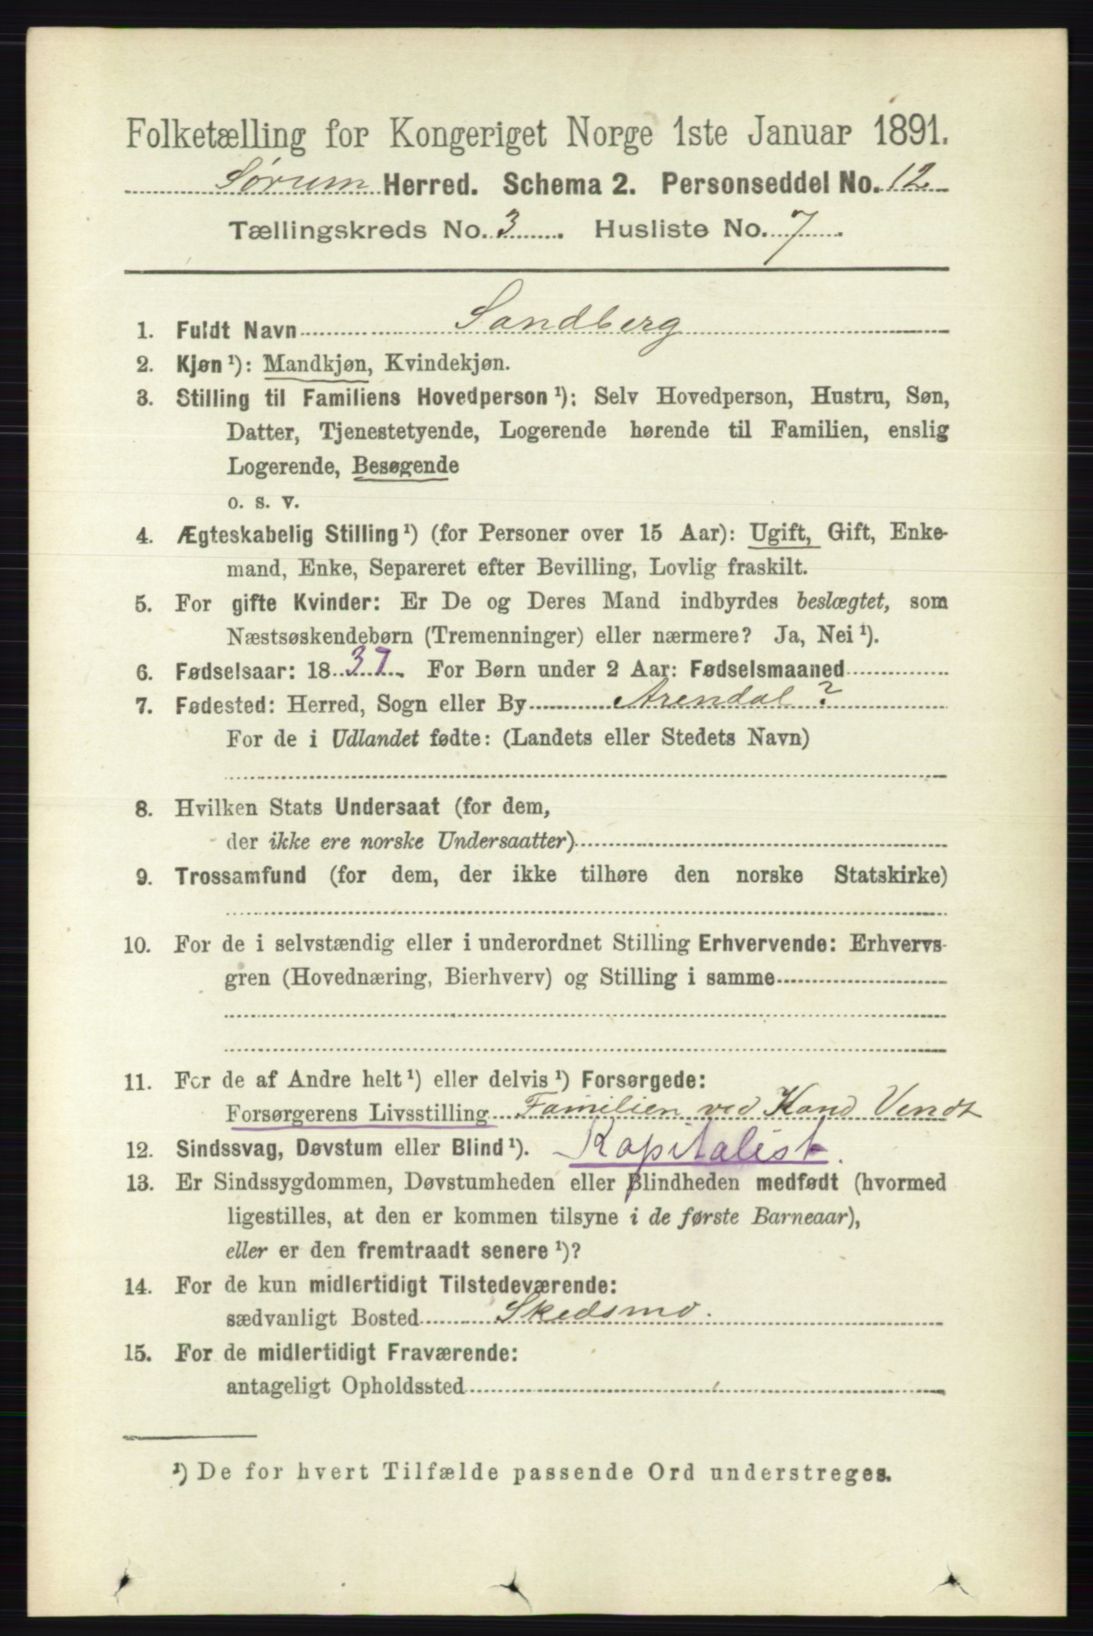 Folketælling for Kongeriget Norge 1ste Januar 1891.
Sørum Herred. Schema 2. Personseddel No. 12
Tællingskreds No. 3 Husliste No. 7
1. Fuldt Navn Sandberg
2. Kjøn ¹): Mandkjøn, Kvindekjøn.
3. Stilling til Familiens Hovedperson ¹): Selv Hovedperson, Hustru, Søn,
Datter, Tjenestetyende, Logerende hørende til Familien, enslig
Logerende, Besøgende
o. s. v.
4. Ægteskabelig Stilling ¹) (for Personer over 15 Aar): Ugift, Gift, Enke-
mand, Enke, Separeret efter Bevilling, Lovlig fraskilt.
5. For gifte Kvinder: Er De og Deres Mand indbyrdes beslægtet, som
Næstsøskendebørn (Tremenninger) eller nærmere? Ja, Nei ¹).
6. Fødselsaar: 18 37. For Børn under 2 Aar: Fødselsmaaned
7. Fødested: Herred, Sogn eller By Arendal ?
For de i Udlandet fødte: (Landets eller Stedets Navn)
8. Hvilken Stats Undersaat (for dem,
der ikke ere norske Undersaatter)
9. Trossamfund (for dem, der ikke tilhøre den norske Statskirke)
10. For de i selvstændig eller i underordnet Stilling Erhvervende: Erhvervs-
gren (Hovednæring, Bierhverv) og Stilling i samme
11. For de af Andre helt ¹) eller delvis ¹) Forsørgede:
Forsørgerens Livsstilling Familien ved Kand Vendt
12. Sindssvag, Døvstum eller Blind ¹). Kapitalist.
13. Er Sindssygdommen, Døvstumheden eller Blindheden medfødt (hvormed
ligestilles, at den er kommen tilsyne i de første Barneaar),
eller er den fremtraadt senere ¹)?
14. For de kun midlertidigt Tilstedeværende:
sædvanligt Bosted Skedsmo.
15. For de midlertidigt Fraværende:
antageligt Opholdssted
¹) De for hvert Tilfælde passende Ord understreges.